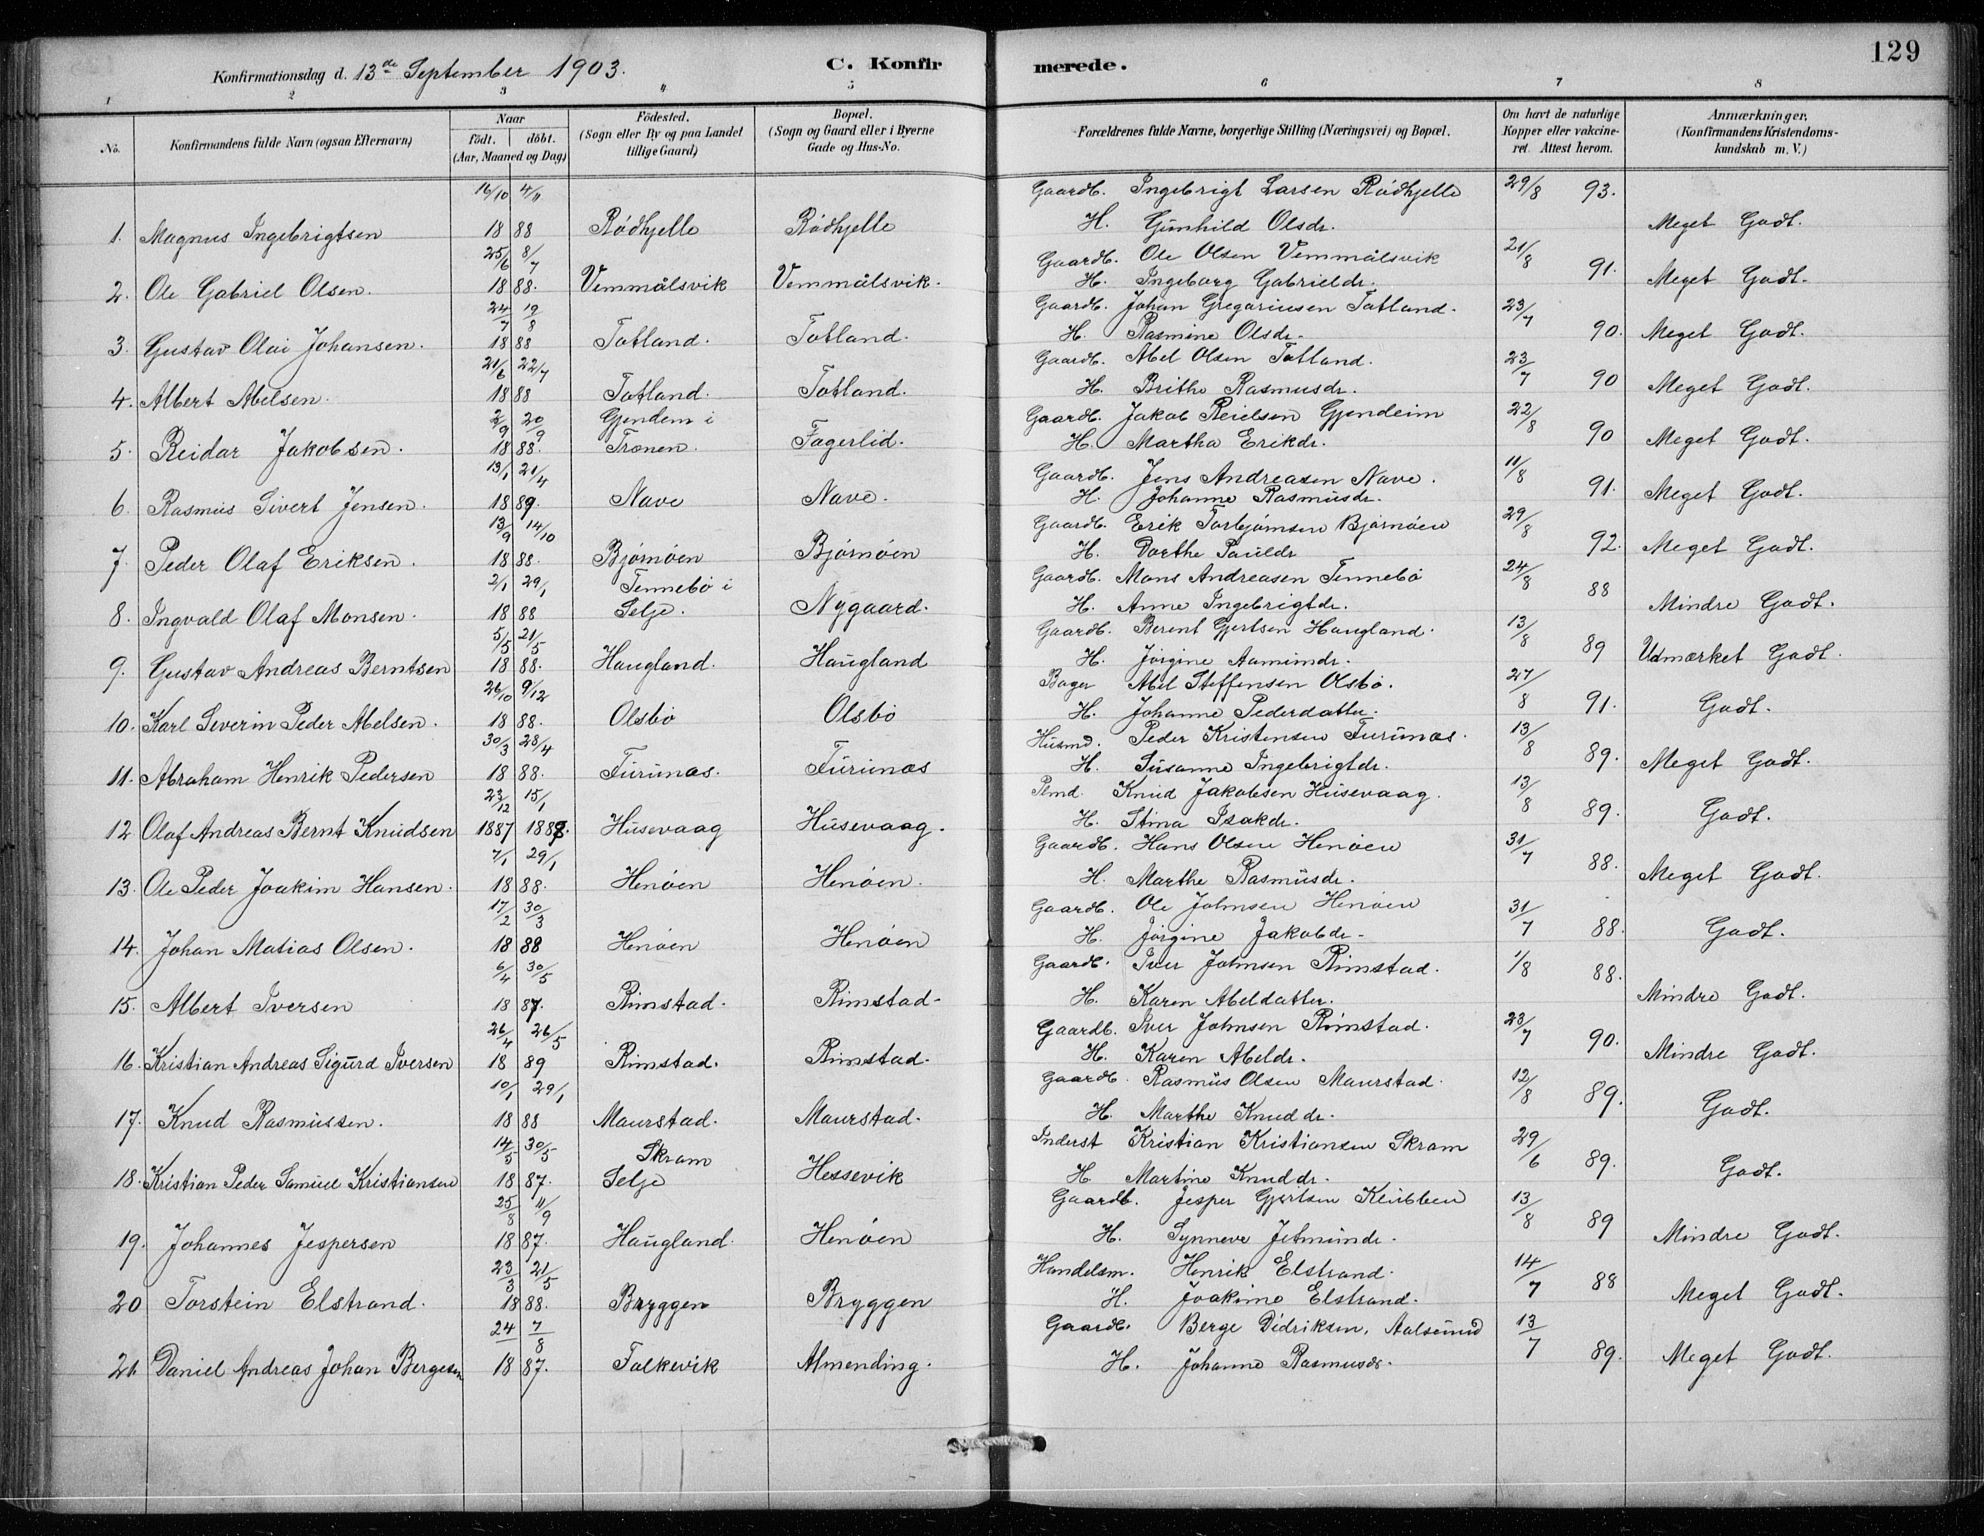 129
Konfirmationsdag d. 13de September 1903. C. Konfirmerede.
1 2 3 4 5 6 7 8
No. Konfirmandens fulde Navn (ogsaa Efternavn) Naar født. døbt. (Aar, Maaned og Dag) Fødested. (Sogn eller By og paa Landet tillige Gaard) Bopæl. (Sogn og Gaard eller i Byerne Gade og Hus-No. Forældrenes fulde Navne, borgerlige Stilling (Næringsvei) og Bopæl. Om havt de naturlige Kopper eller vakcineret. Attest herom. Anmærkninger. (Konfirmandens Kristendomskundskab m. V.)
16/10 4/11 Gaardb. Ingebrigt Larsen Rödhjelle 29/8 93.
1. Magnus Ingebrigtsen 18 88 Rödhjelle Rödhjelle H. Gunhild Olsdr. Meget Godt.
25/6 8/7 Gaardb. Ole Olsen Vemmälsvik 21/8 91.
2. Ole Gabriel Olsen. 18 88. Vemmälsvik Vemmälsvik. H. Ingeborg Gabrieldr. Meget Godt.
24/7 19/8 Gaardb. Johan Gregoriusen Totland. 23/7 90.
3. Gustav Olai Johansen. 18 88 Totland. Totland. H. Rasmine Olsdr. Meget Godt.
21/6 22/7 Gaardb. Abel Olsen Totland. 23/7 90
4. Albert Abelsen. 18 88 Totland. Totland. H. Brithe Rasmusdr. Meget Godt.
2/9 20/9 Gjendem i Gaardb. Jakob Reielsen Gjendeim 22/8 90
5. Reidar Jakobsen. 18 88. Tronen. Fagerlid. H. Martha Erikdr. Meget Godt.
13/1 21/4 Gaardb. Jens Andreasen Nave. 11/8 91.
6. Rasmus Sivert Jensen. 18 89. Nave Nave. H. Johanne Rasmusdr. Meget Godt.
13/9 14/10 Gaardb. Erik Torbjørnsen Bjørnöen 29/8 92.
7. Peder Olaf Eriksen. 18 88. Bjørnöen Bjørnöen H. Dorthe Pauldr Meget Godt.
2/1 29/1 Tennebö i Gaardb. Mons Andreasen Tennebö 24/8 88
8. Ingvald Olaf Monsen. 18 88 Selje. Nygaard. H. Anne Ingebrigtdr. Mindre Godt.
5/5 21/5 Gaardb. Berent Gjertsen Haugland. 13/8 89
9. Gustav Andreas Berntsen 18 88. Haugland. Haugland H. Jörgine Aamundr. Udmærket Godt.
26/10 9/12 Bager Abel Steffensen Olsbö. 27/8 91.
10. Karl Severin Peder Abelsen. 18 88. Olsbö Olsbö H. Johanne Pederdatter. Godt.
30/3 28/4 Husmd. Peder Kristensen Furunæs. 13/8 89.
11. Abraham Henrik Pedersen 18 88. Furunæs. Furunæs H. Susanne Ingebrigtdr. Meget Godt.
23/12 15/1 Plmd. Knud Jakobsen Husevaag. 13/8 89.
12 Olaf Andreas Bernt Knudsen 1887 1888. Husevaag Husevaag. H. Stina Isakdr. Godt.
7/1 29/1 Gaardb. Hans Olsen Henöen 31/7 88.
13. Ole Peder Joakim Hansen. 18 88. Henöen Henöen. H. Marthe Rasmusdr. Meget Godt.
17/2 30/3 Gaardb. Ole Johnsen Henöen 31/7 88.
14. Johan Matias Olsen. 18 88 Henöen Henöen H. Jörgine Jakobdr. Godt.
6/4 30/5 Gaardb. Iver Johnsen Rimstad. 1/8 88.
15. Albert Iversen 18 87. Rimstad. Rimstad. H. Karen Abeldatter. Mindre Godt.
26/4 26/5 Gaardb. Iver Johnsen Rimstad. 23/7 90.
16. Kristian Andreas Sigurd Iversen 18 89 Rimstad. Rimstad. H. Karen Abeldr. Mindre Godt.
10/1 29/1 Gaardb. Rasmus Olsen Maurstad. 12/8 89.
17. Knud Rasmussen. 18 88 Maurstad. Maurstad. H. Marthe Knuddr. Godt.
14/5 30/5 Skram Inderst Kristian Kristiansen Skram 29/6 89.
18. Kristian Peder Samuel Kristiansen 18 87. Selje Hessevik H Martine Knuddr. Godt.
25/8 11/9 Gaardb. Jesper Gjertsen Klubben 13/8 89
19. Johannes Jespersen 18 87. Haugland. Henöen H. Synneve Jetmundr. Mindre Godt.
23/3 21/5 Handelsm. Henrik Elstrand. 14/7 88
20 Torstein Elstrand. 18 88. Bryggen Bryggen H. Joakime Elstrand. Meget Godt.
24 7/8 Gaardb. Berge Didriksen, Aalsund 13/7 89.
21. Daniel Andreas Johan Bergesen 18 87. Falkevik Almending. H. Johanne Rasmusdr. Meget Godt.